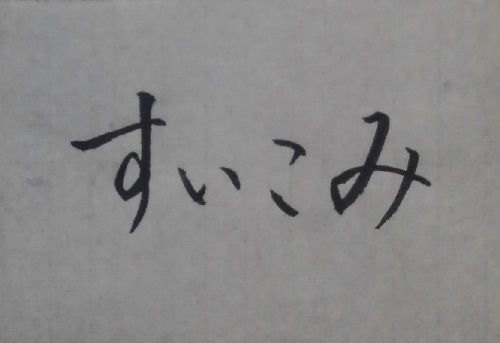 すいこみ